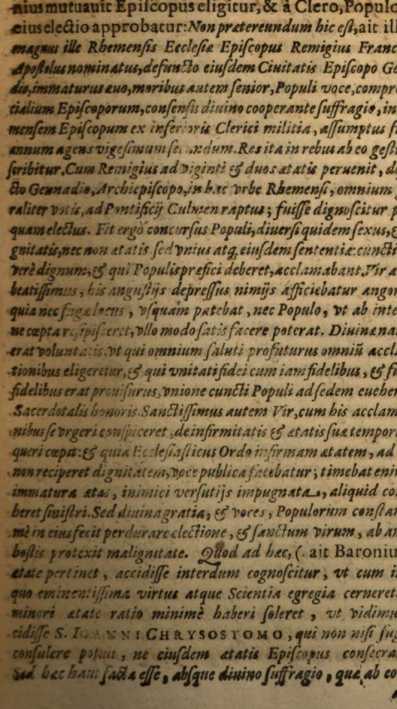 nius mutauit Episcopus eligitur, & à Clero, Populo
eius electio approbatur: Non prætereundum hic est, ait ill
magnus ille Rhemensis Ecclesiæ Episcopus Remigius Franc
Apostolus nominatus, defuncto eiusdem Ciuitatis Episcopo Ge
dio, immaturus æuo, moribus autem senior, Populi voce, compr
cialium Episcoporum, consensu diuino cooperante suffragio, in
mensem Episcopum ex inferioris Clerici militia, assumptus f
annum agens vigesimum secundum. Res ita in rebus ab eo gest
scribitur. Cum Remigius ad viginti & duos ætatis peruenit, d
cto Gennadio, Archiepiscopo, in hac vrbe Rhemensi, omnium
raliter votis, ad Pontificij Culmen raptus; fuisse dignoscitur p
quam electus. Fit ergo concursus Populi, diuersi quidem sexus, &
gnitatis, nec non ætatis sed vnius atq. eiusdem sententiæ: cuncti
verè dignum, & qui Populis præfici deberet, acclamabant. Vir a
beatissimus, his angustijs depressus nimijs afficiebatur angor
quia nec fugæ locus, vsquam patebat, nec Populo, vt ab inte
ne cœpta resipisceret, vllo modo satisfacere poterat. Diuinæ na
erat voluntatis, vt qui omnium saluti profuturus omniũ accl
tionibus eligeretur, & qui vnitati fidei cum iam fidelibus, & f
fidelibus erat prouisurus, vnione cuncti Populi ad sedem euehe
Sacerdotalis honoris. Sanctissimus autem Vir, cum his acclam
nibus se vrgeri conspiceret, de infirmitatis & ætatis suæ tempor
queri cœpit: & quia Ecclesiasticus Ordo infirmam ætatem, ad
non reciperet dignitatem, voce publica fatebatur; timebat eni
immatura ætas, inimici versutijs impugnata, aliquid co
beret sinistri. Sed diuina gratia, & voces, Populorum constan
mè in eius fecit perdurare electione, & sanctum virum, ab an
hostis protexit malignitate. Quod ad hæc, (ait Baroniu
ætate pertinet, accidisse interdum cognoscitur, vt cum i
quo eminentissima virtus atque Scientia egregia cerneret
minori ætate ratio minimè haberi soleret, vt vidimu
cidisse S. IOANNI CHRYSOSTOMO, qui non nisi sug
consulere potuit, ne eiusdem ætatis Episcopus consecra
Sed hæc haud facta esse, absque diuino suffragio, quæ ab eo